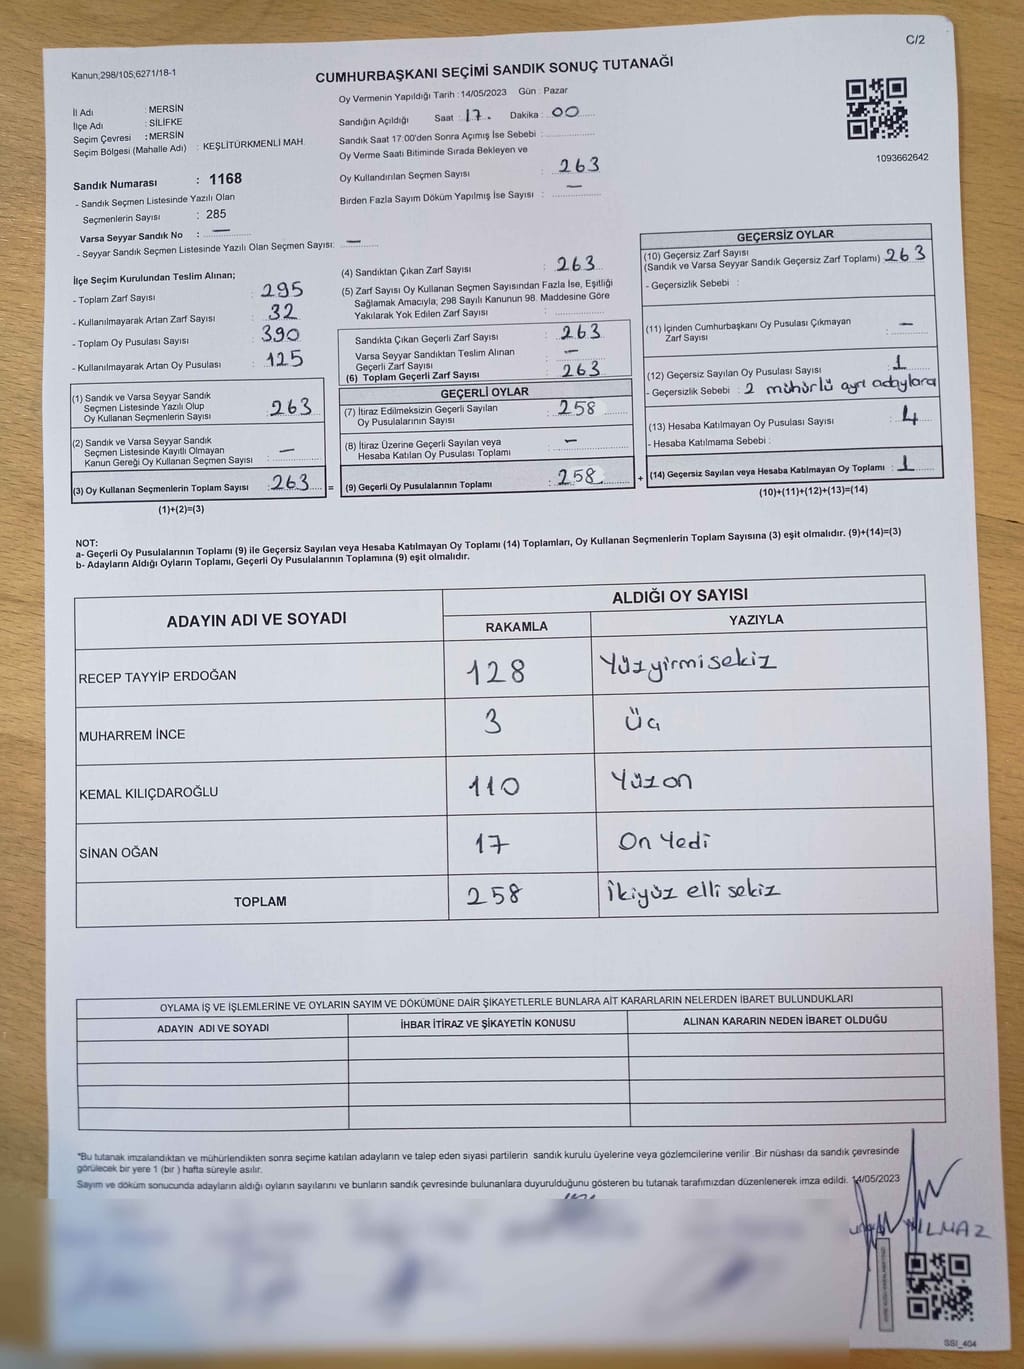 C/2
Kanun;298/105,6271/18-1
CUMHURBAŞKANI SEÇİMİ SANDIK SONUÇ TUTANAĞI
İl Adı : MERSİN
İlçe Adı : SİLİFKE
Seçim Çevresi : MERSİN
Seçim Bölgesi (Mahalle Adı) : KEŞLİTÜRKMENLİ MAH.
Sandık Numarası : 1168
- Sandık Seçmen Listesinde Yazılı Olan
Seçmenlerin Sayısı : 285
Varsa Seyyar Sandık No : —
- Seyyar Sandık Seçmen Listesinde Yazılı Olan Seçmen Sayısı: —
Oy Vermenin Yapıldığı Tarih : 14/05/2023 Gün : Pazar
Sandığın Açıldığı Saat : 17. Dakika : 00
Sandık Saat 17:00'den Sonra Açımış İse Sebebi :
Oy Verme Saati Bitiminde Sırada Bekleyen ve
Oy Kullandırılan Seçmen Sayısı : 263
Birden Fazla Sayım Döküm Yapılmış İse Sayısı : —
1093662642
İlçe Seçim Kurulundan Teslim Alınan;
- Toplam Zarf Sayısı : 295
- Kullanılmayarak Artan Zarf Sayısı : 32
- Toplam Oy Pusulası Sayısı : 390
- Kullanılmayarak Artan Oy Pusulası : 125
(1) Sandık ve Varsa Seyyar Sandık
Seçmen Listesinde Yazılı Olup
Oy Kullanan Seçmenlerin Sayısı : 263
(2) Sandık ve Varsa Seyyar Sandık
Seçmen Listesinde Kayıtlı Olmayan
Kanun Gereği Oy Kullanan Seçmen Sayısı : —
(3) Oy Kullanan Seçmenlerin Toplam Sayısı : 263 =
(1)+(2)=(3)
(4) Sandıktan Çıkan Zarf Sayısı : 263
(5) Zarf Sayısı Oy Kullanan Seçmen Sayısından Fazla İse, Eşitliği
Sağlamak Amacıyla; 298 Sayılı Kanunun 98. Maddesine Göre
Yakılarak Yok Edilen Zarf Sayısı :
Sandıkta Çıkan Geçerli Zarf Sayısı : 263
Varsa Seyyar Sandıktan Teslim Alınan
Geçerli Zarf Sayısı : —
(6) Toplam Geçerli Zarf Sayısı : 263
GEÇERLİ OYLAR
(7) İtiraz Edilmeksizin Geçerli Sayılan
Oy Pusulalarının Sayısı : 258
(8) İtiraz Üzerine Geçerli Sayılan veya
Hesaba Katılan Oy Pusulası Toplamı : —
(9) Geçerli Oy Pusulalarının Toplamı : 258 +
GEÇERSİZ OYLAR
(10) Geçersiz Zarf Sayısı
(Sandık ve Varsa Seyyar Sandık Geçersiz Zarf Toplamı) : 263
- Geçersizlik Sebebi :
(11) İçinden Cumhurbaşkanı Oy Pusulası Çıkmayan
Zarf Sayısı : —
(12) Geçersiz Sayılan Oy Pusulası Sayısı : 1
- Geçersizlik Sebebi : 2 mühürlü ayrı adaylara
(13) Hesaba Katılmayan Oy Pusulası Sayısı : 4
- Hesaba Katılmama Sebebi :
(14) Geçersiz Sayılan veya Hesaba Katılmayan Oy Toplamı : 1
(10)+(11)+(12)+(13)=(14)
NOT:
a- Geçerli Oy Pusulalarının Toplamı (9) ile Geçersiz Sayılan veya Hesaba Katılmayan Oy Toplamı (14) Toplamları, Oy Kullanan Seçmenlerin Toplam Sayısına (3) eşit olmalıdır. (9)+(14)=(3)
b- Adayların Aldığı Oyların Toplamı, Geçerli Oy Pusulalarının Toplamına (9) eşit olmalıdır.
ADAYIN ADI VE SOYADI ALDIĞI OY SAYISI
RAKAMLA YAZIYLA
RECEP TAYYİP ERDOĞAN 128 Yüzyirmisekiz
MUHARREM İNCE 3 Üç
KEMAL KILIÇDAROĞLU 110 Yüzon
SİNAN OĞAN 17 On Yedi
TOPLAM 258 İkiyüz elli sekiz
OYLAMA İŞ VE İŞLEMLERİNE VE OYLARIN SAYIM VE DÖKÜMÜNE DAİR ŞİKAYETLERLE BUNLARA AİT KARARLARIN NELERDEN İBARET BULUNDUKLARI
ADAYIN ADI VE SOYADI İHBAR İTİRAZ VE ŞİKAYETİN KONUSU ALINAN KARARIN NEDEN İBARET OLDUĞU
*Bu tutanak imzalandıktan ve mühürlendikten sonra seçime katılan adayların ve talep eden siyasi partilerin sandık kurulu üyelerine veya gözlemcilerine verilir .Bir nüshası da sandık çevresinde
görülecek bir yere 1 (bir ) hafta süreyle asılır.
Sayım ve döküm sonucunda adayların aldığı oyların sayılarını ve bunların sandık çevresinde bulunanlara duyurulduğunu gösteren bu tutanak tarafımızdan düzenlenerek imza edildi. 14/05/2023
YILMAZ
SSI_404